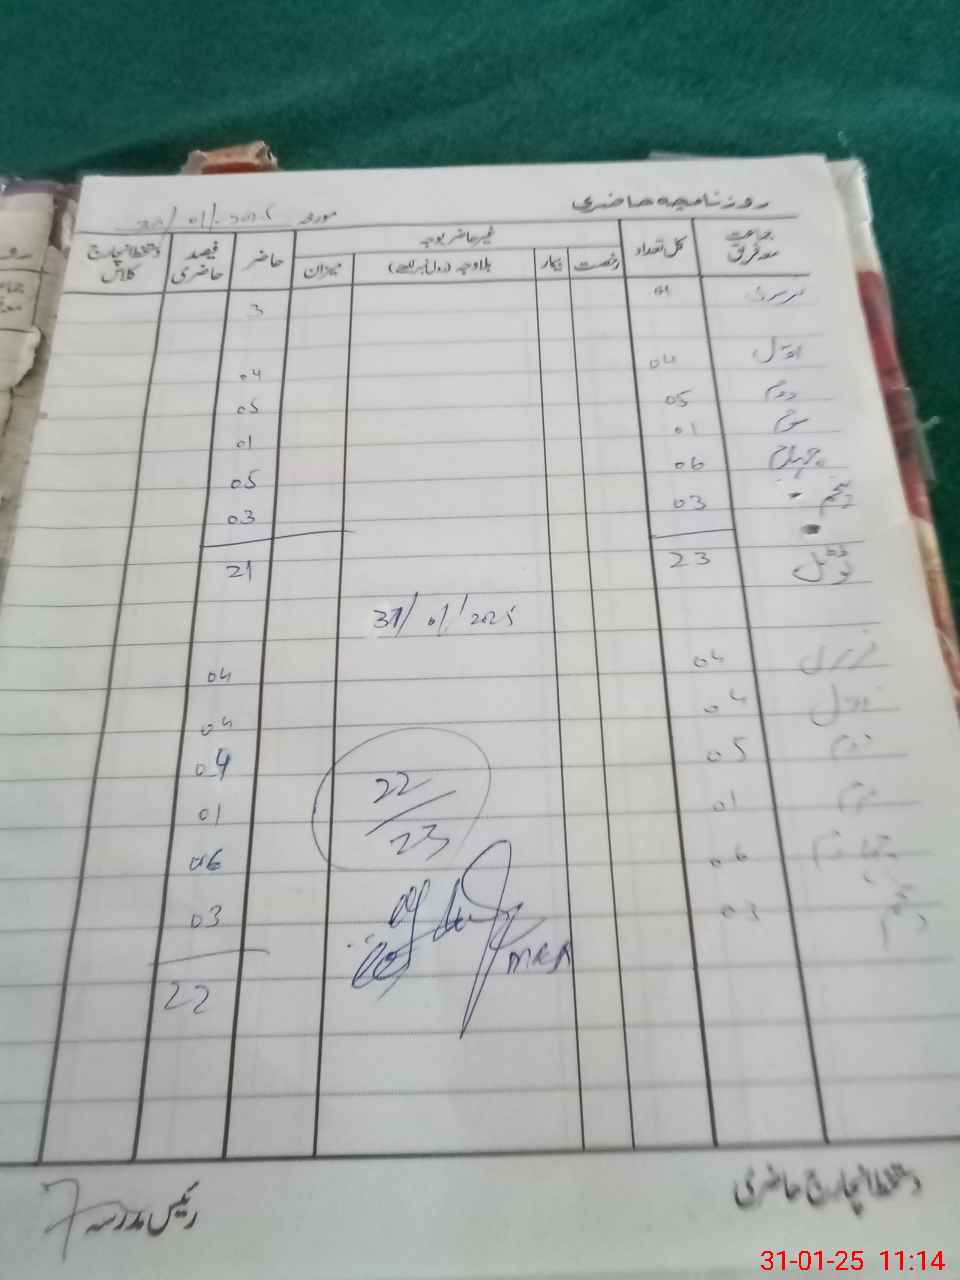 روزنامچہ حاضری
مورخہ 30/01/2025
جماعت معہ فریق کل تعداد غیر حاضر بوجہ حاضر فیصد حاضری دستخط انچارج کلاس
رخصت بیمار بلاوجہ (رول نمبر لکھیے) میزان
نرسری 04 3
اول 04 04
دوم 05 05
سوم 01 01
چہارم 06 05
پنجم 03 03
ٹوٹل 23 21
31/01/2025
نرسری 04 04
اول 04 04
دوم 05 04
سوم 01 01
چہارم 06 06
پنجم 03 03
22
22/23
MEA
دستخط انچارج حاضری
رئیس مدرسہ 7
31-01-25 11:14